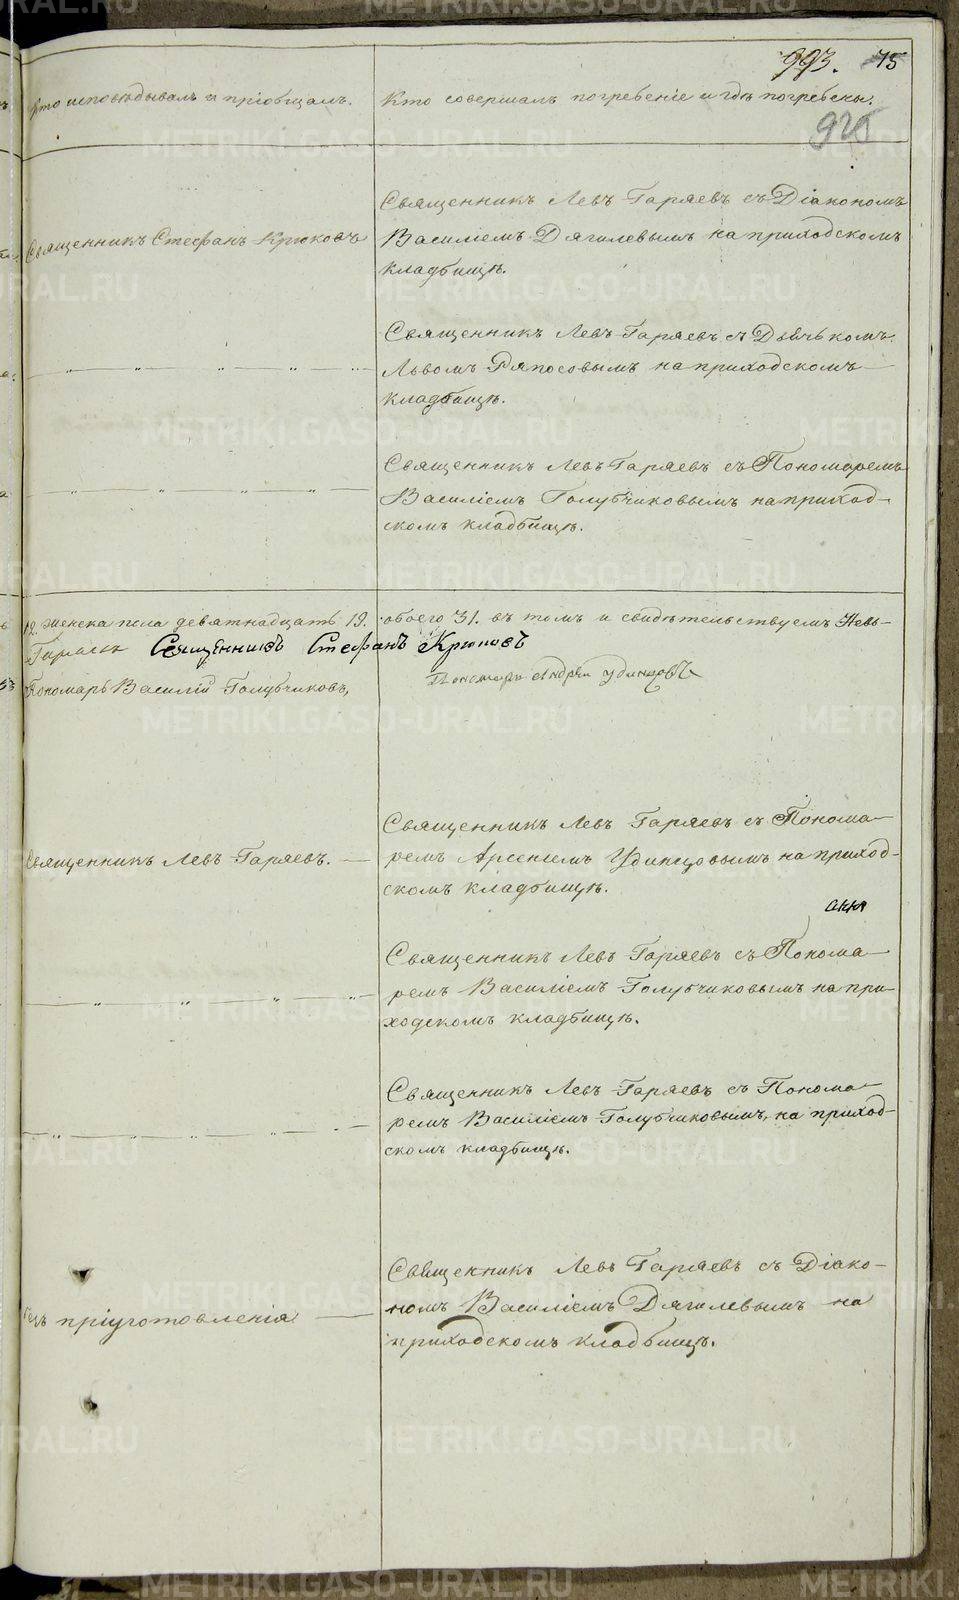 993. 75
Кто исповѣдывалъ и пріобщалъ.
Кто совершалъ погребеніе и гдѣ погребены.
925
Священникъ Стефанъ Крюковъ
Священникъ Левъ Гаряевъ съ Діакономъ
Василіемъ Дягилевымъ на приходскомъ
кладбищѣ.
Священникъ Левъ Гаряевъ съ Дьячькомъ
Львомъ Ряпосовымъ на приходскомъ
кладбищѣ.
Священникъ Левъ Гаряевъ съ Пономаремъ
Василіемъ Голубчиковымъ на приход-
скомъ кладбищѣ.
12. женска пола девятнадцать 19. обоего 31. въ томъ и свидѣтельствуемъ
Священникъ Стефанъ Крюковъ
Пономарь Василій Голубчиковъ,
Пономарь Андрей Удинцовъ
Священникъ Левъ Гаряевъ.
Священникъ Левъ Гаряевъ съ Понома-
ремъ Арсеніемъ Удинцовымъ на приход-
скомъ кладбищѣ.
Священникъ Левъ Гаряевъ съ Понома-
ремъ Василіемъ Голубчиковымъ на при-
ходскомъ кладбищѣ.
Священникъ Левъ Гаряевъ съ Понома-
ремъ Василіемъ Голубчиковымъ, на приход-
скомъ кладбищѣ.
безъ пріуготовленія
Священникъ Левъ Гаряевъ съ Діако-
номъ Василіемъ Дягилевымъ на
приходскомъ кладбищѣ.
METRIKI.GASO-URAL.RU